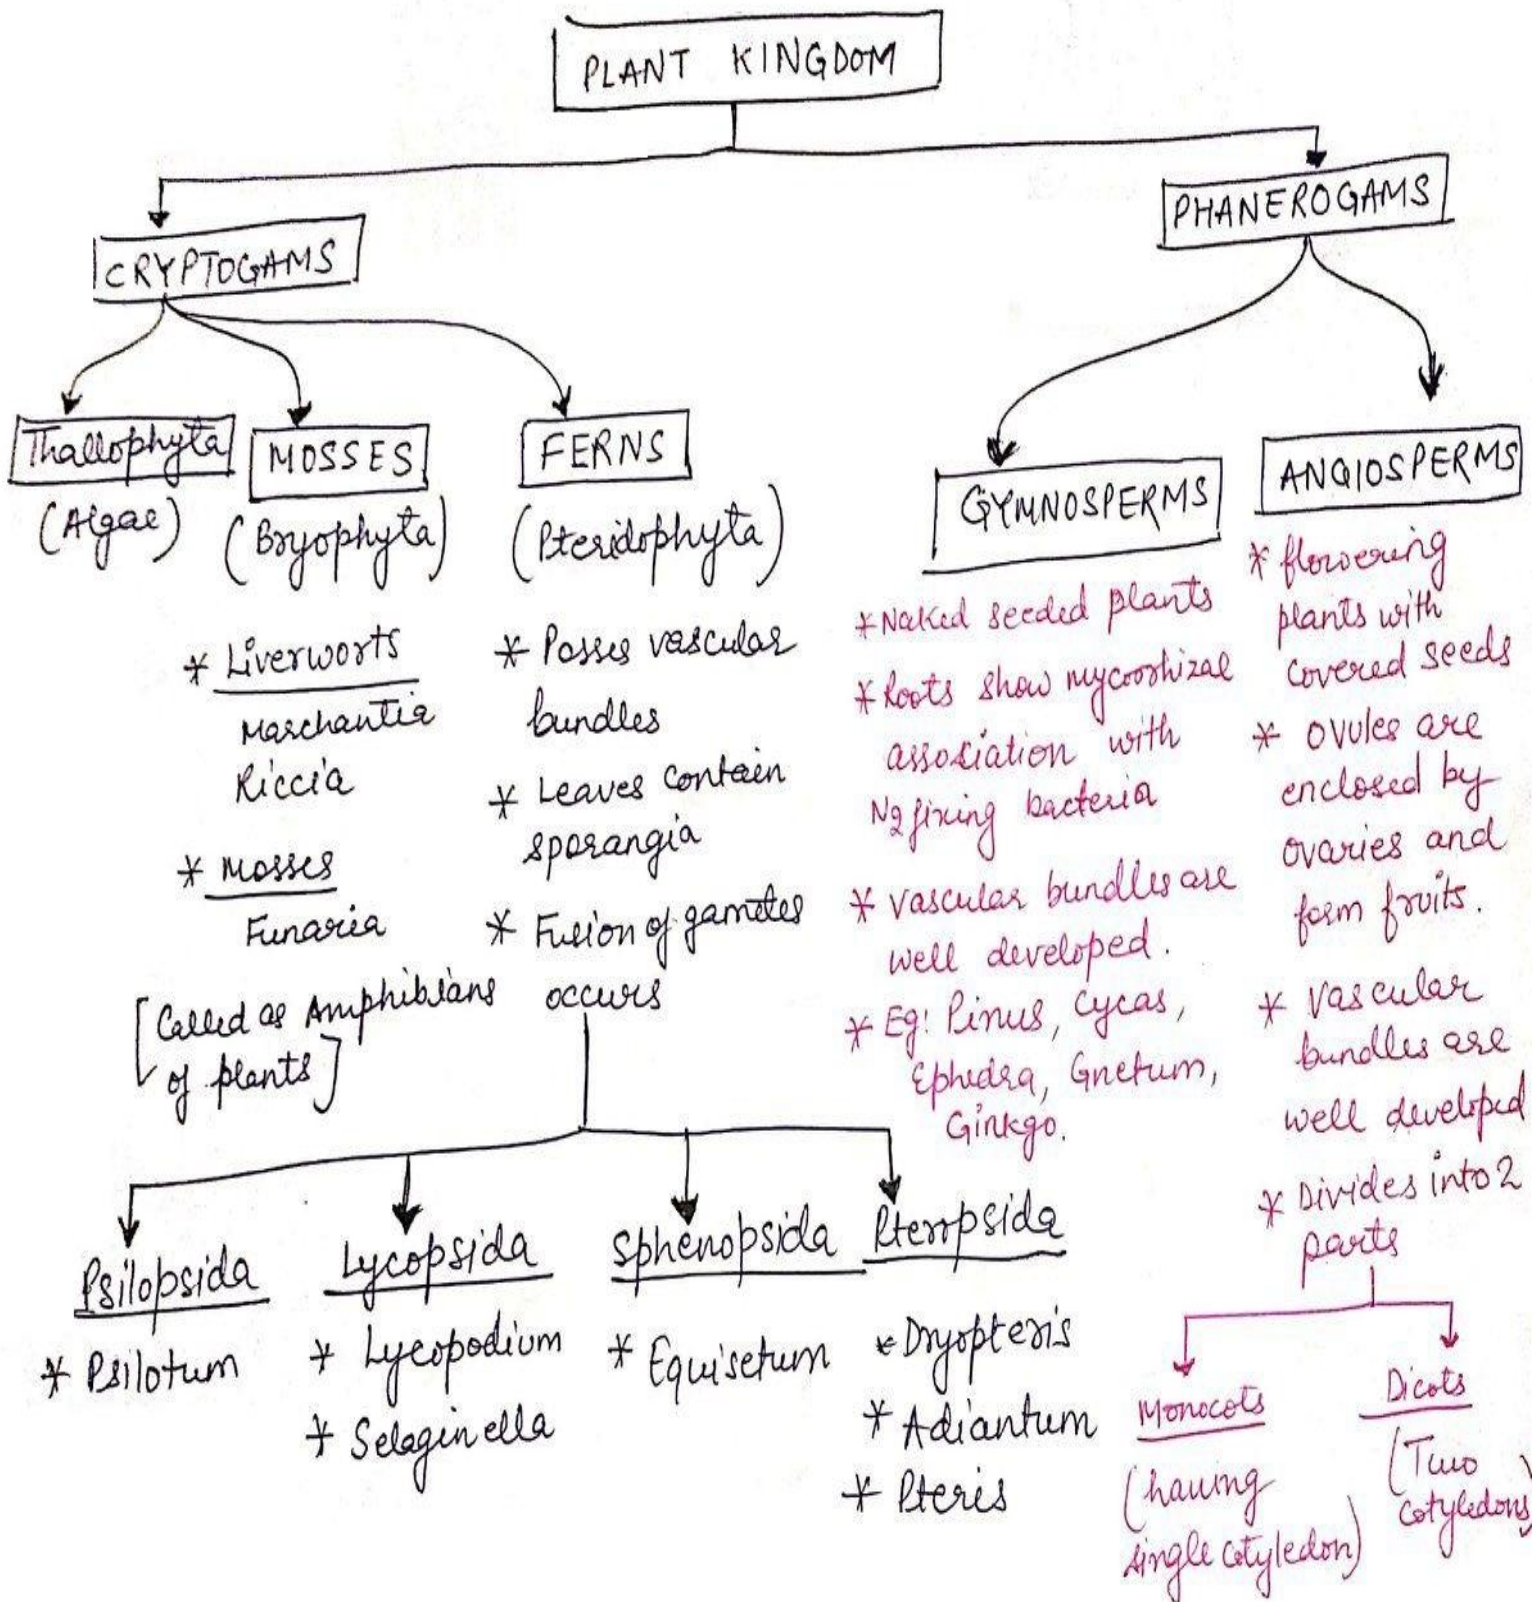 PLANT KINGDOM
CRYPTOGAMS
PHANEROGAMS
Thallophyta
(Algae)
MOSSES
(Bryophyta)
* Liverworts
Marchantia
Riccia
* Mosses
Funaria
[Called as Amphibians
of plants]
FERNS
(Pteridophyta)
* Posses vascular
bundles
* Leaves contain
sporangia
* Fusion of gametes
occurs
Psilopsida
* Psilotum
Lycopsida
* Lycopodium
* Selaginella
Sphenopsida
* Equisetum
Pteropsida
* Dryopteris
* Adiantum
* Pteris
GYMNOSPERMS
* Naked seeded plants
* Roots show mycorrhizal
association with
N2 fixing bacteria
* Vascular bundles are
well developed.
* Eg: Pinus, Cycas,
Ephedra, Gnetum,
Ginkgo.
ANGIOSPERMS
* flowering
plants with
covered seeds
* Ovules are
enclosed by
ovaries and
form fruits.
* Vascular
bundles are
well developed
* Divides into 2
parts
Monocots
(having
single cotyledon)
Dicots
(Two
cotyledons)